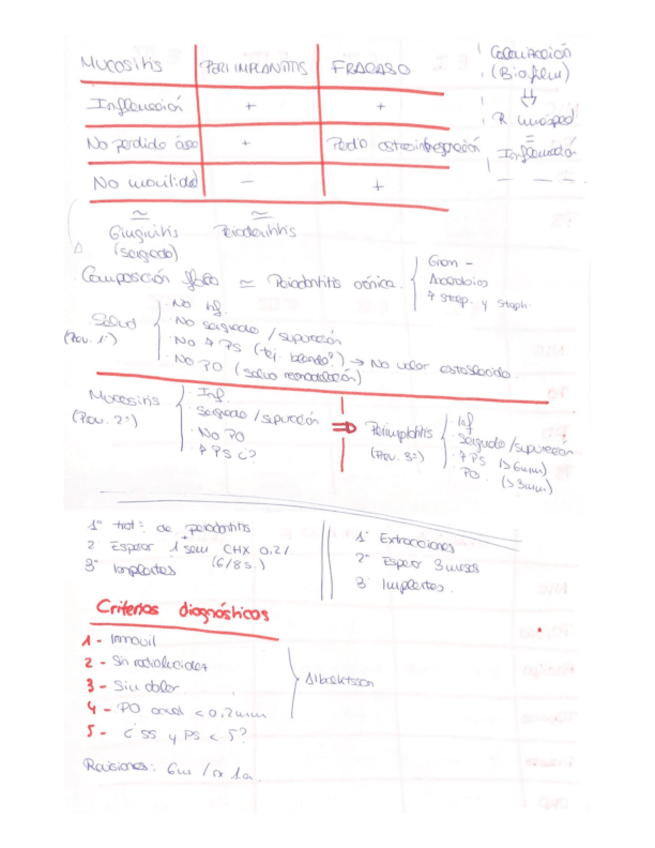 MUCOSITIS PERIIMPLANTITIS FRACASO
Inflamación + +
No perdida ósea + Perd osteointegración
No movilidad - +
Colonización
(Biofilm)
R. huésped
=
Inflamación
≃ ≃
Gingivitis Periodontitis
(sangrado)
Composición flora ≃ Periodontitis crónica.
· Gram -
· Anaerobios
· ↑ Strep. y Staph.
Salud
(Prev. 1ª)
· No inf.
· No sangrado / supuración
· No ↑ PS (tej. blando?) → No valor establecido.
· No PO (salvo remodelación)
Mucositis
(Prev. 2ª)
· Inf.
· Sangrado / supuración
· No PO
· ↑ PS ¿?
⇒ Periimplantitis
(Prev. 3ª)
· Inf
· Sangrado / supuración
· ↑ PS (>6mm)
· PO. (>3mm)
1º trat: de periodontitis
2º Esperar 1 sem CHX 0,2%
(6/8s.)
3º Implantes
1º Extracciones
2º Esperar 3 meses
3º Implantes.
Criterios diagnósticos
1 - Inmovil
2 - Sin radiolucidez
3 - Sin dolor
4 - PO anual < 0,2mm
5 - ¿ SS y PS < 5?
Albrektsson
Revisiones: 6m / rx 1a.